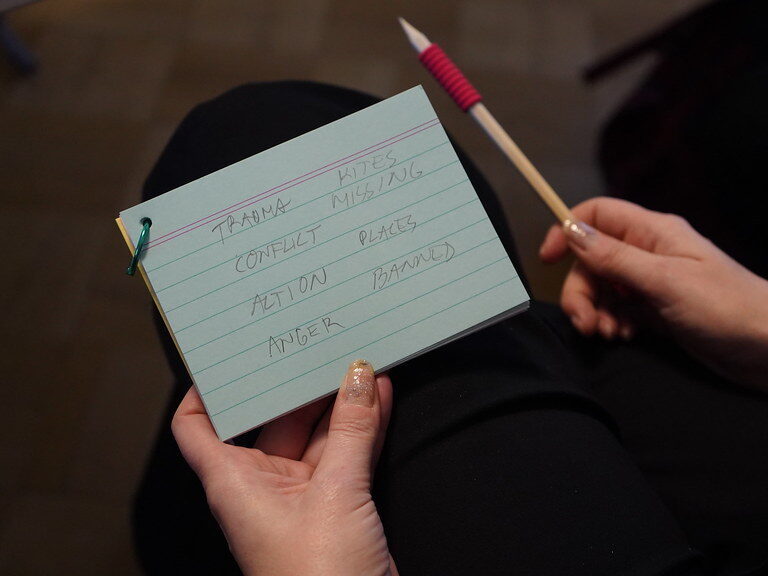 TRAUMA
CONFLICT
ACTION
ANGER
KITES
MISSING
PLACES
BANNED